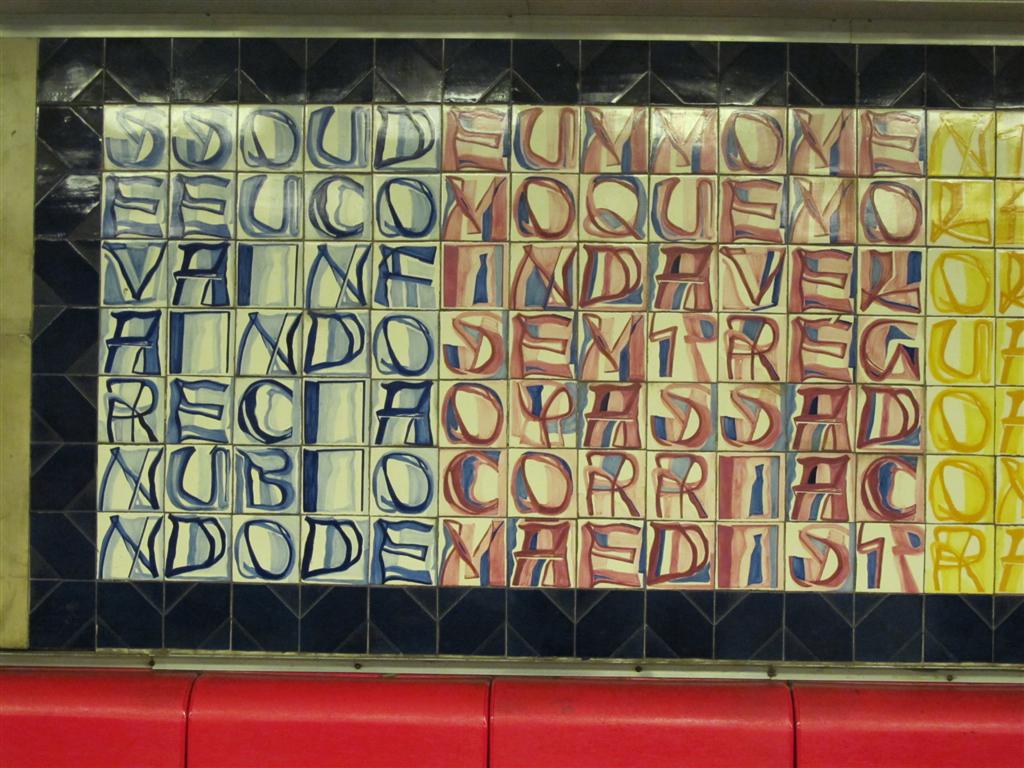 SSOUDEUMMOMEN
EEUCOMOQUEMOL
VAINFINDAVELO
AINDOSEMTREGU
RECIAOPASSADO
NUBIOCORRIACO
NDODEMAEDISTR